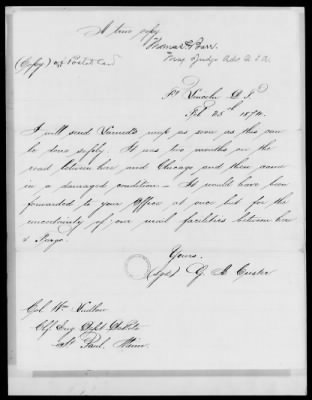 A true copy
Thomas F Barr
Maj & Judge Adv U.S.A.
(Copy) of Postal Card
Ft Lincoln D.T.
Feb 25th 1874.
I will send map as soon as this can
be done safely. It was two months on the
road between here and Chicago and then came
in a damaged condition - It would have been
forwarded to your Office at once but for the
uncertainty of our mail facilities between here
& Fargo.
Yours.
(sgd) G A Custer
Col. Wm Ludlow
Chf. Eng. Dept Dakota
St Paul. Minn.